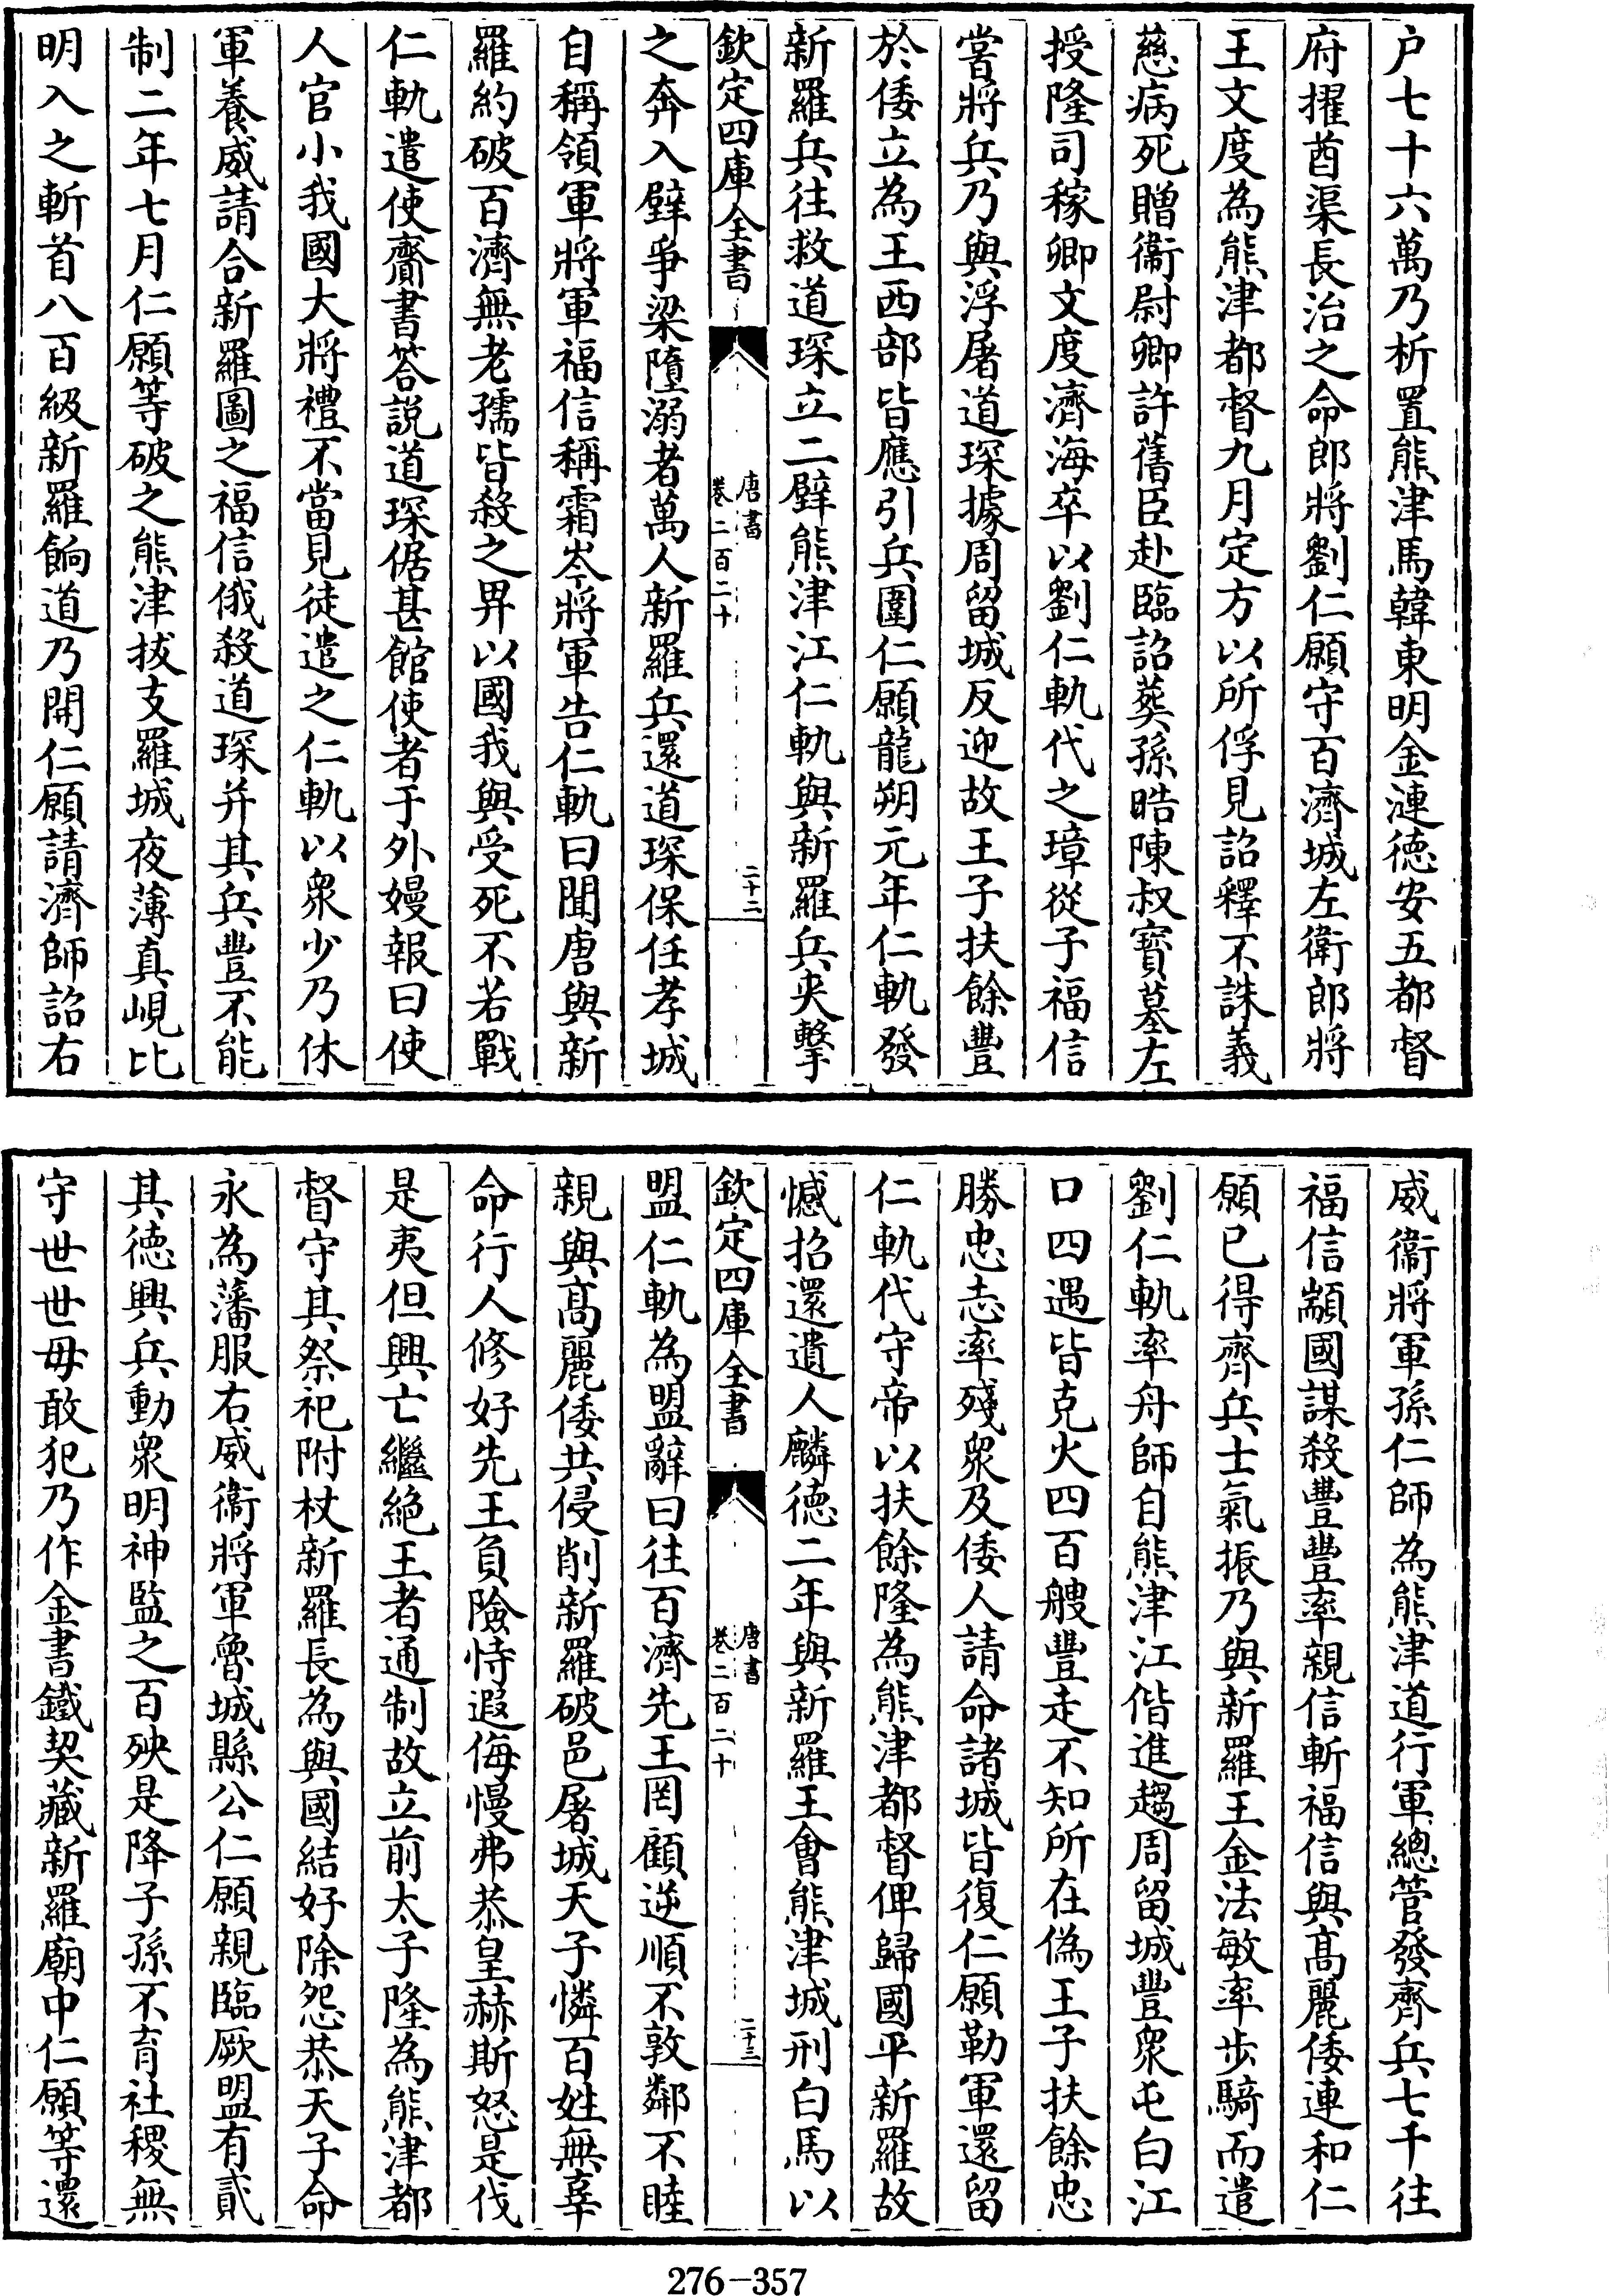 户七十六萬乃析置熊津馬韓東明金漣徳安五都督
府擢酋渠長治之命郎將劉仁願守百濟城左衛郎將
王文度為熊津都督九月定方以所俘見詔釋不誅義
慈病死贈衞尉卿許舊臣赴臨詔葬孫晧陳叔寳墓左
授隆司稼卿文度濟海卒以劉仁軌代之璋從子福信
嘗將兵乃與浮屠道琛據周留城反迎故王子扶餘豐
於倭立為王西部皆應引兵圍仁願龍朔元年仁軌發
新羅兵往救道琛立二壁熊津江仁軌與新羅兵夾擊
欽定四庫全書
唐書
卷二百二十
二十二
之奔入壁爭梁墮溺者萬人新羅兵還道琛保任孝城
自稱領軍將軍福信稱霜岑將軍告仁軌曰聞唐與新
羅約破百濟無老孺皆殺之畀以國我與受死不若戰
仁軌遣使齎書答説道琛倨甚館使者于外嫚報曰使
人官小我國大將禮不當見徒遣之仁軌以衆少乃休
軍養威請合新羅圖之福信俄殺道琛并其兵豐不能
制二年七月仁願等破之熊津拔支羅城夜薄真峴比
明入之斬首八百級新羅餉道乃開仁願請濟師詔右
威衞將軍孫仁師為熊津道行軍總管發齊兵七千往
福信顓國謀殺豐豐率親信斬福信與髙麗倭連和仁
願已得齊兵士氣振乃與新羅王金法敏率步騎而遣
劉仁軌率舟師自熊津江偕進趨周留城豐衆屯白江
口四遇皆克火四百艘豐走不知所在偽王子扶餘忠
勝忠志率殘衆及倭人請命諸城皆復仁願勒軍還留
仁軌代守帝以扶餘隆為熊津都督俾歸國平新羅故
憾招還遺人麟徳二年與新羅王會熊津城刑白馬以
欽定四庫全書
唐書
卷二百二十
二十三
盟仁軌為盟辭曰往百濟先王罔顧逆順不敦鄰不睦
親與髙麗倭共侵削新羅破邑屠城天子憐百姓無辜
命行人修好先王負險恃遐侮慢弗恭皇赫斯怒是伐
是夷但興亡繼絶王者通制故立前太子隆為熊津都
督守其祭祀附杖新羅長為與國結好除怨恭天子命
永為藩服右威衞將軍魯城縣公仁願親臨厥盟有貳
其徳興兵動衆明神監之百殃是降子孫不育社稷無
守世世毋敢犯乃作金書鐵契藏新羅廟中仁願等還
276-357